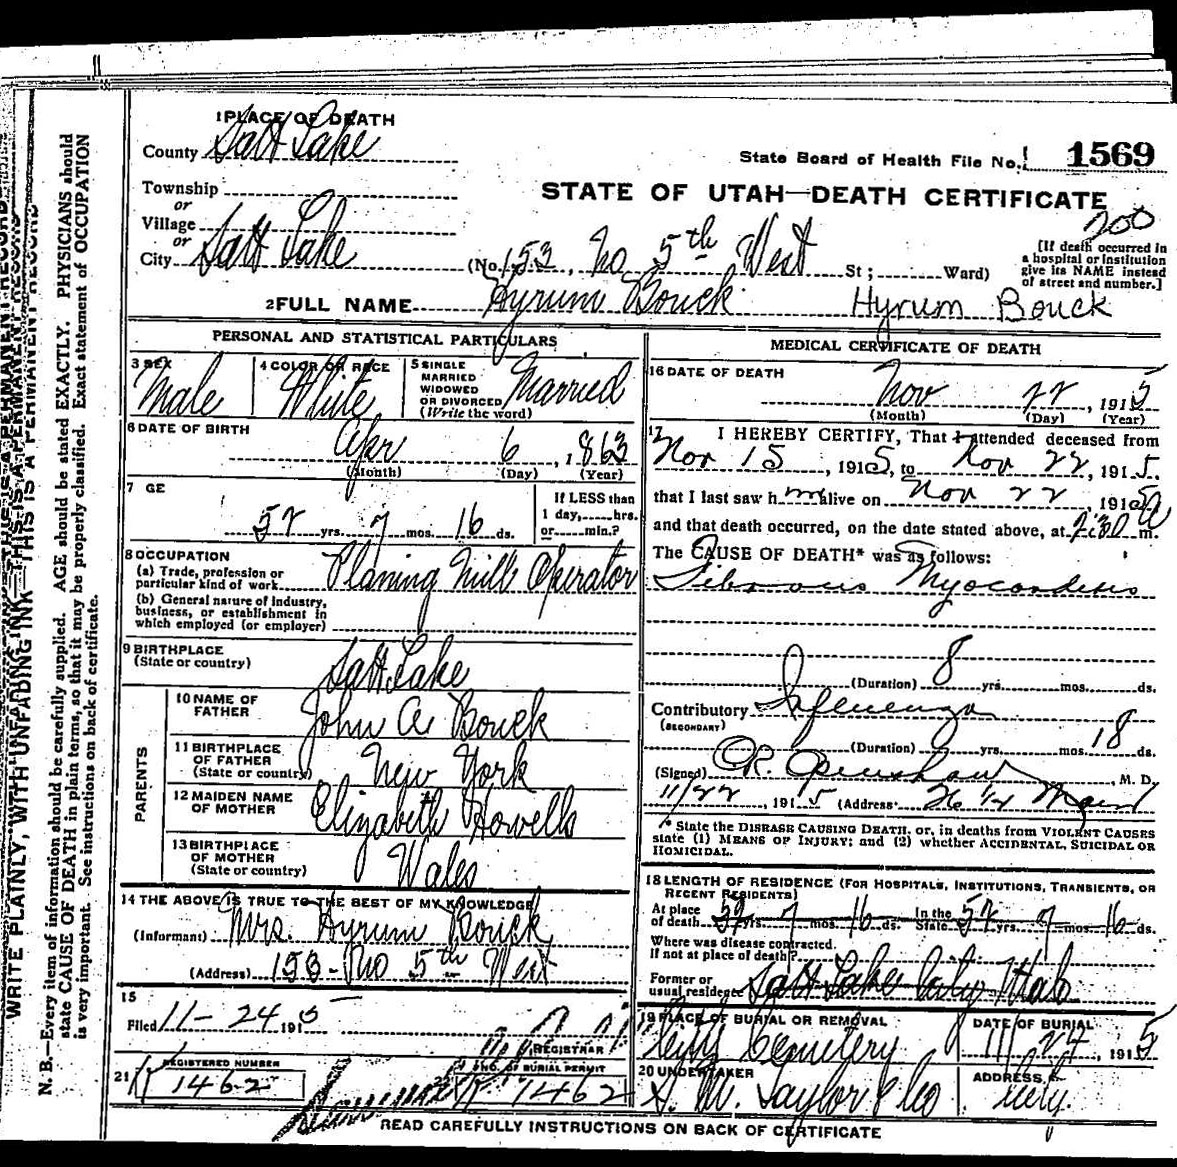 1 PLACE OF DEATH
County Salt Lake
State Board of Health File No. 1569
Township
or
Village
or
City Salt Lake
STATE OF UTAH—DEATH CERTIFICATE
200
(No. 153, No 5th West St; Ward)
[If death occurred in a hospital or institution give its NAME instead of street and number.]
2 FULL NAME Hyrum Bouck Hyrum Bouck
PERSONAL AND STATISTICAL PARTICULARS
3 SEX Male
4 COLOR OR RACE White
5 SINGLE MARRIED WIDOWED OR DIVORCED (Write the word) Married
6 DATE OF BIRTH Apr 6, 1863
(Month) (Day) (Year)
7 GE 52 yrs. 7 mos. 16 ds.
If LESS than 1 day, hrs. or min.?
8 OCCUPATION
(a) Trade, profession or particular kind of work Planing Mill Operator
(b) General nature of industry, business, or establishment in which employed (or employer)
9 BIRTHPLACE (State or country) Salt Lake
PARENTS
10 NAME OF FATHER John A Bouck
11 BIRTHPLACE OF FATHER (State or country) New York
12 MAIDEN NAME OF MOTHER Elizabeth Howells
13 BIRTHPLACE OF MOTHER (State or country) Wales
14 THE ABOVE IS TRUE TO THE BEST OF MY KNOWLEDGE
(Informant) Mrs. Hyrum Bouck
(Address) 153 - No 5th West
15
Filed 11-24 1915
REGISTRAR
21 REGISTERED NUMBER 1462
NO. OF BURIAL PERMIT 1462
MEDICAL CERTIFICATE OF DEATH
16 DATE OF DEATH
Nov 22, 1915
(Month) (Day) (Year)
17 I HEREBY CERTIFY, That I attended deceased from
Nov 15, 1915, to Nov 22, 1915.
that I last saw him alive on Nov 22 1915
and that death occurred, on the date stated above, at m.
The CAUSE OF DEATH* was as follows:
Fibrous Myocarditis
(Duration) 8 yrs. mos. ds.
Contributory Influenza
(SECONDARY)
(Duration) yrs. mos. 18 ds.
(Signed) M. D.
11/22, 1915 (Address) Main
* State the DISEASE CAUSING DEATH, or, in deaths from VIOLENT CAUSES state (1) MEANS OF INJURY; and (2) whether ACCIDENTAL, SUICIDAL OR HOMICIDAL.
18 LENGTH OF RESIDENCE (FOR HOSPITALS, INSTITUTIONS, TRANSIENTS, OR RECENT RESIDENTS)
At place of death 52 yrs. 7 mos. 16 ds. In the State 52 yrs. 7 mos. 16 ds.
Where was disease contracted, If not at place of death?
Former or usual residence Salt Lake City Utah
19 PLACE OF BURIAL OR REMOVAL City Cemetery
DATE OF BURIAL 11/24, 1915
20 UNDERTAKER S. M. Taylor & Co
ADDRESS City.
READ CAREFULLY INSTRUCTIONS ON BACK OF CERTIFICATE
WRITE PLAINLY, WITH UNFADING INK—THIS IS A PERMANENT RECORD
N. B.—Every item of information should be carefully supplied. AGE should be stated EXACTLY. PHYSICIANS should
state CAUSE OF DEATH in plain terms, so that it may be properly classified. Exact statement of OCCUPATION
is very important. See instructions on back of certificate.